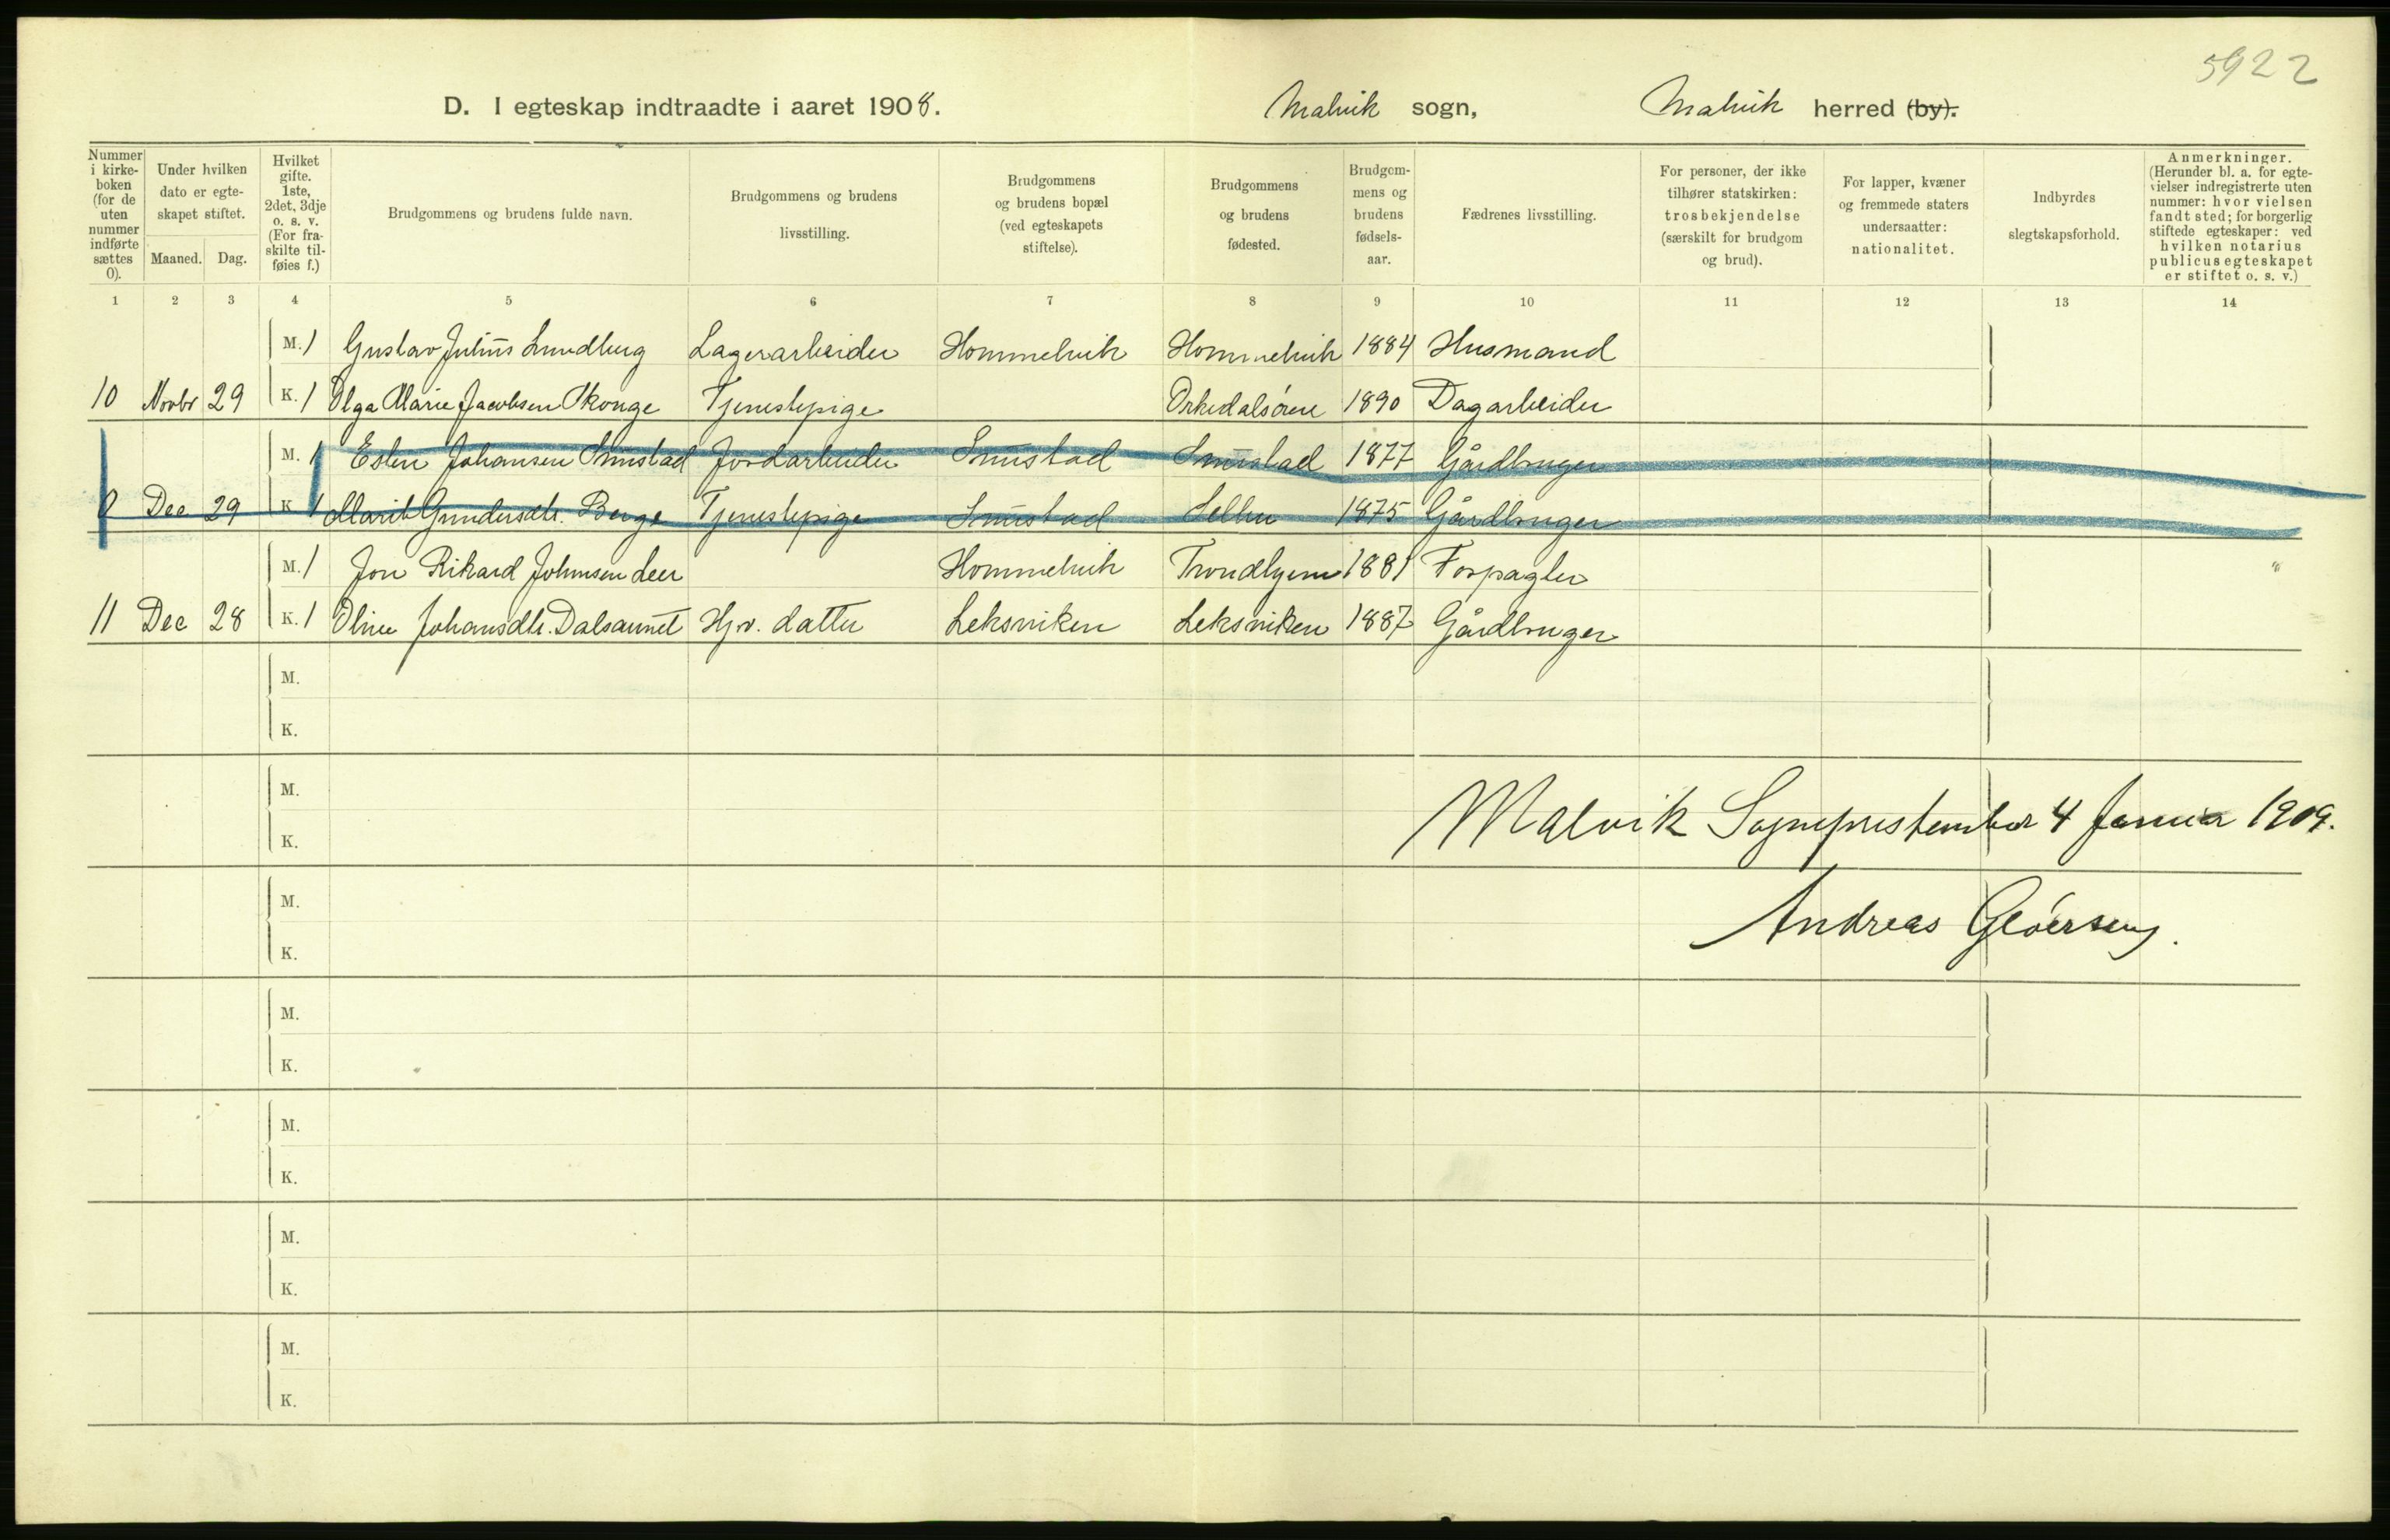 5922
D. I egteskap indtraadte i aaret 1908. Malvik sogn, Malvik herred (by).
Nummer i kirke-boken (for de uten nummer indførte sættes 0).
Under hvilken dato er egte-skapet stiftet.
Maaned. Dag.
Hvilket gifte. 1ste, 2det, 3dje o. s. v. (For fra-skilte til-føies f.)
Brudgommens og brudens fulde navn.
Brudgommens og brudens livsstilling.
Brudgommens og brudens bopæl (ved egteskapets stiftelse).
Brudgommens og brudens fødested.
Brudgom-mens og brudens fødsels-aar.
Fædrenes livsstilling.
For personer, der ikke tilhører statskirken: trosbekjendelse (særskilt for brudgom og brud).
For lapper, kvæner og fremmede staters undersaatter: nationalitet.
Indbyrdes slegtskapsforhold.
Anmerkninger. (Herunder bl. a. for egte-vielser indregistrerte uten nummer: hvor vielsen fandt sted; for borgerlig stiftede egteskaper: ved hvilken notarius publicus egteskapet er stiftet o. s. v.)
1 2 3 4 5 6 7 8 9 10 11 12 13 14
M. 1 Gustav Julius Lundberg Lagerarbeider Hommelvik Hommelvik 1884 Husmand
10 Novbr 29 K. 1 Olga Marie Jacobsen Skonge Tjenestepige Orkedalsøren 1890 Dagarbeider
M. 1 Esten Johansen Smistad Jordarbeider Smistad Smistad 1877 Gårdbruger
0 Dec 29 K 1 Marit Gundersdtr. Berge Tjenestepige Smistad Selbu 1875 Gårdbruger
M. 1 Jon Rikard Johnsen Leer Hommelvik Trondhjem 1881 Forpagter
11 Dec 28 K. 1 Oline Johansdtr. Dalsaunet Hjv. datter Leksviken Leksviken 1887 Gårdbruger
M.
K.
M.
Malvik Sogneprestembed 4 Januar 1909.
K.
M.
Andreas Gløersen.
K.
M.
K.
M.
K.
M.
K.
M.
K.